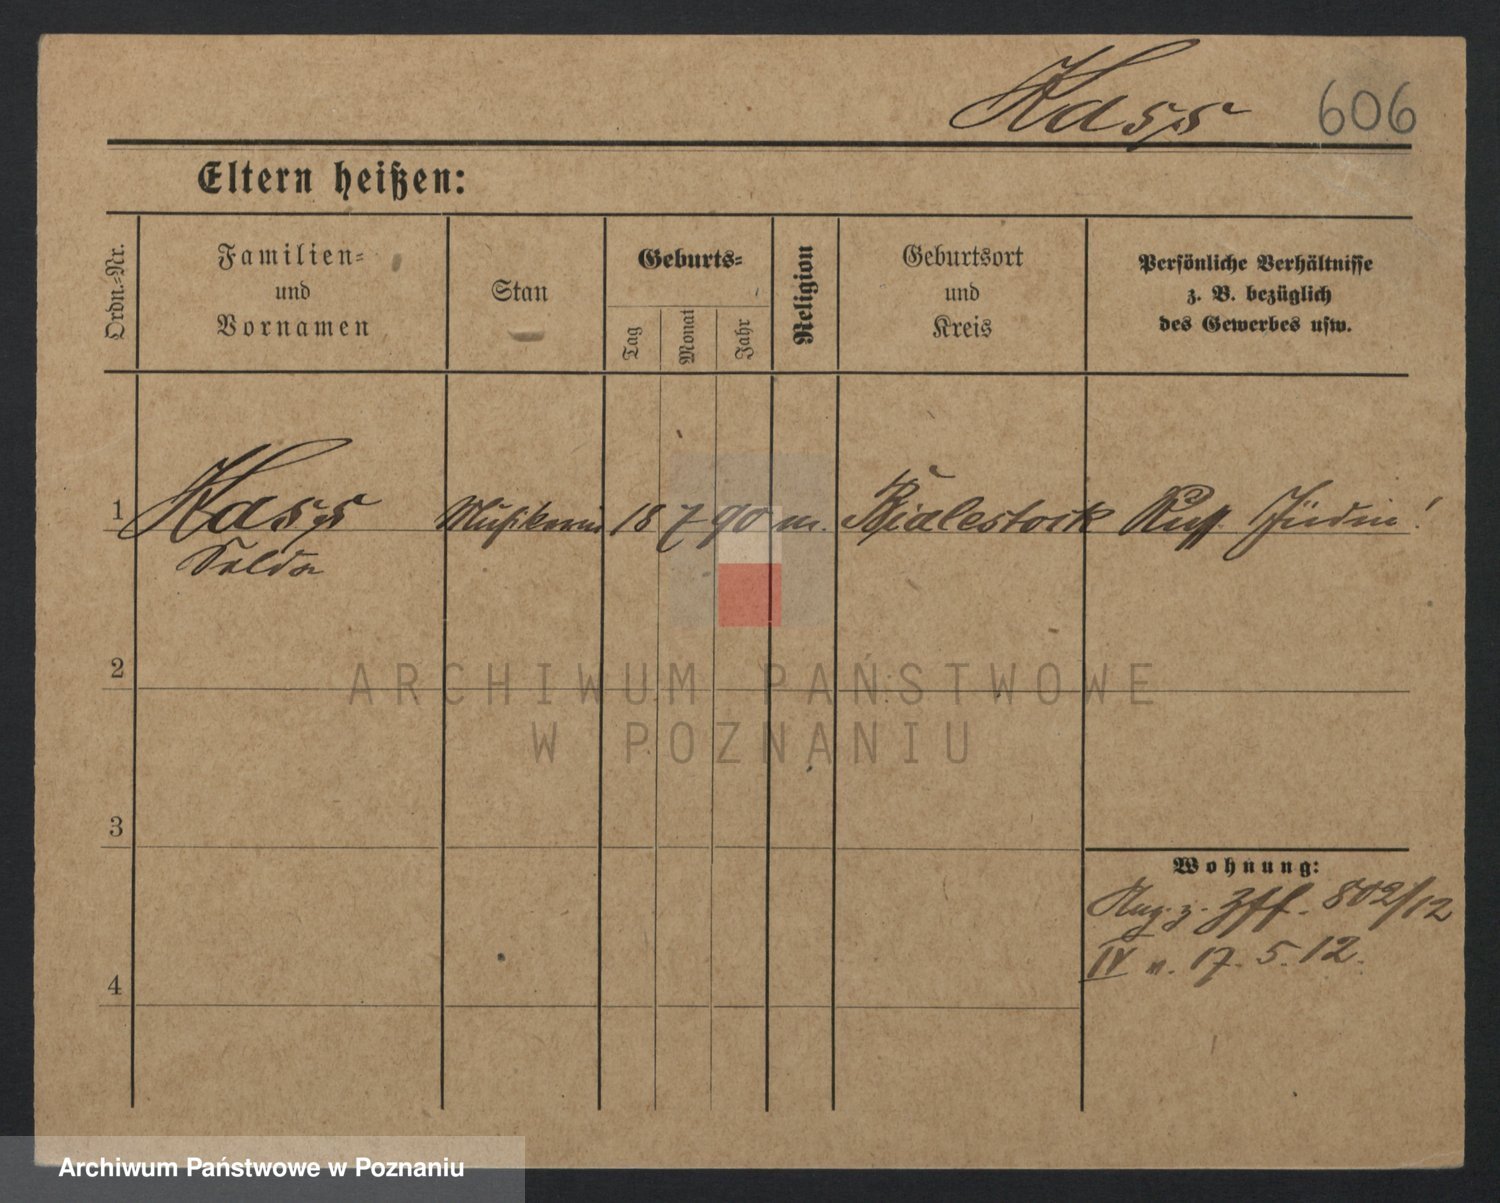 Kass 606
Eltern heißen:
Ordn.-Nr.
Familien- und Vornamen
Stan
Geburts-
Tag
Monat
Jahr
Religion
Geburtsort und Kreis
Persönliche Verhältnisse
z. B. bezüglich
des Gewerbes usw.
1 Kass Musikerin 18 7 90 m. Bialestock Russ. Jüdin!
2
ARCHIWUM PAŃSTWOWE
W POZNANIU
3
Wohnung:
802/12
IV v. 17. 5. 12.
4
Archiwum Państwowe w Poznaniu